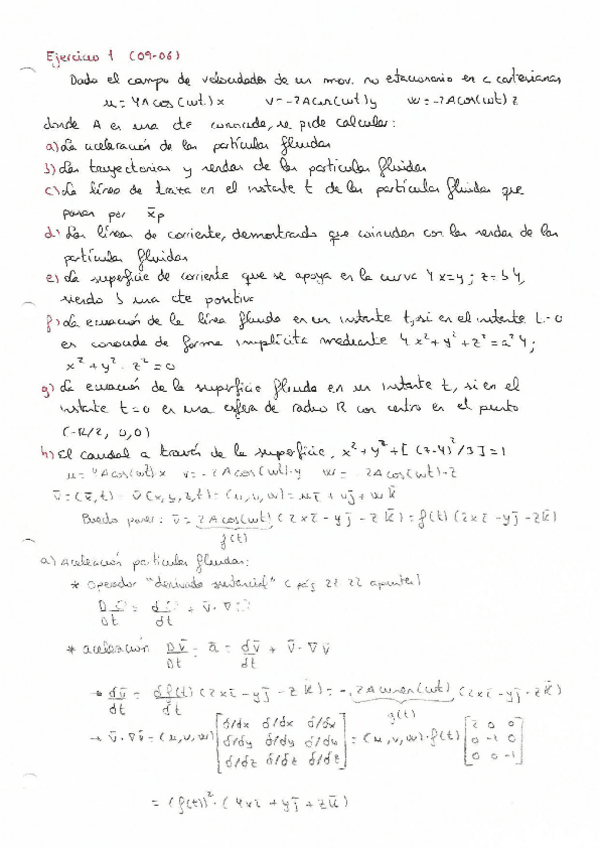 Ejercicio 1 (09-06)
Dado el campo de velocidades de un mov. no estacionario en c cartesianas
u = 4A cos(wt)x v = -2A cos(wt)y w = -2A cos(wt) z
donde A es una cte conocida, se pide calcular:
a) La aceleración de las partículas fluidas
b) Las trayectorias y sendas de las partículas fluidas
c) La línea de traza en el instante t de las partículas fluidas que
pasan por x̄p
d) Las líneas de corriente, demostrando que coinciden con las sendas de las
partículas fluidas
e) La superficie de corriente que se apoya en la curva 4x=y; z=b4,
siendo b una cte positiva
f) La ecuación de la línea fluida en un instante t, si en el instante t=0
es conocida de forma implícita mediante 4x²+y²+z²=a²4;
x²+y²-z²=0
g) La ecuación de la superficie fluida en un instante t, si en el
instante t=0 es una esfera de radio R con centro en el punto
(-R/2, 0,0)
h) El caudal a través de la superficie, x²+y²+[(z-4)²/3]=1
u = 4A cos(wt)·x v = -2A cos(wt)·y w = -2A cos(wt)·z
v̄ = (x̄,t) v̄(x,y,z,t) = (u,v,w) = uī + vj̄ + wk̄
Puedo poner: v̄ = 2A cos(wt) (2xī - yj̄ - zk̄) = f(t) (2xī - yj̄ - zk̄)
f(t)
a) Aceleración partículas fluidas:
* Operador "derivada sustancial" (pág 21 22 apuntes)
D/Dt = d/dt + v̄·∇
* aceleración Dv̄/Dt = ā = dv̄/dt + v̄·∇v̄
→ dv̄/dt = df(t)/dt (2xī - yj̄ - zk̄) = -2Aw sen(wt) (2xī - yj̄ - zk̄)
g(t)
→ v̄·∇v̄ = (u,v,w) [δ/dx δ/dx δ/dx; δ/dy δ/dy δ/dy; δ/dz δ/dz δ/dz] = (u,v,w)·f(t) [2 0 0; 0 -1 0; 0 0 -1]
= (f(t))²·(4xī + yj̄ + zk̄)